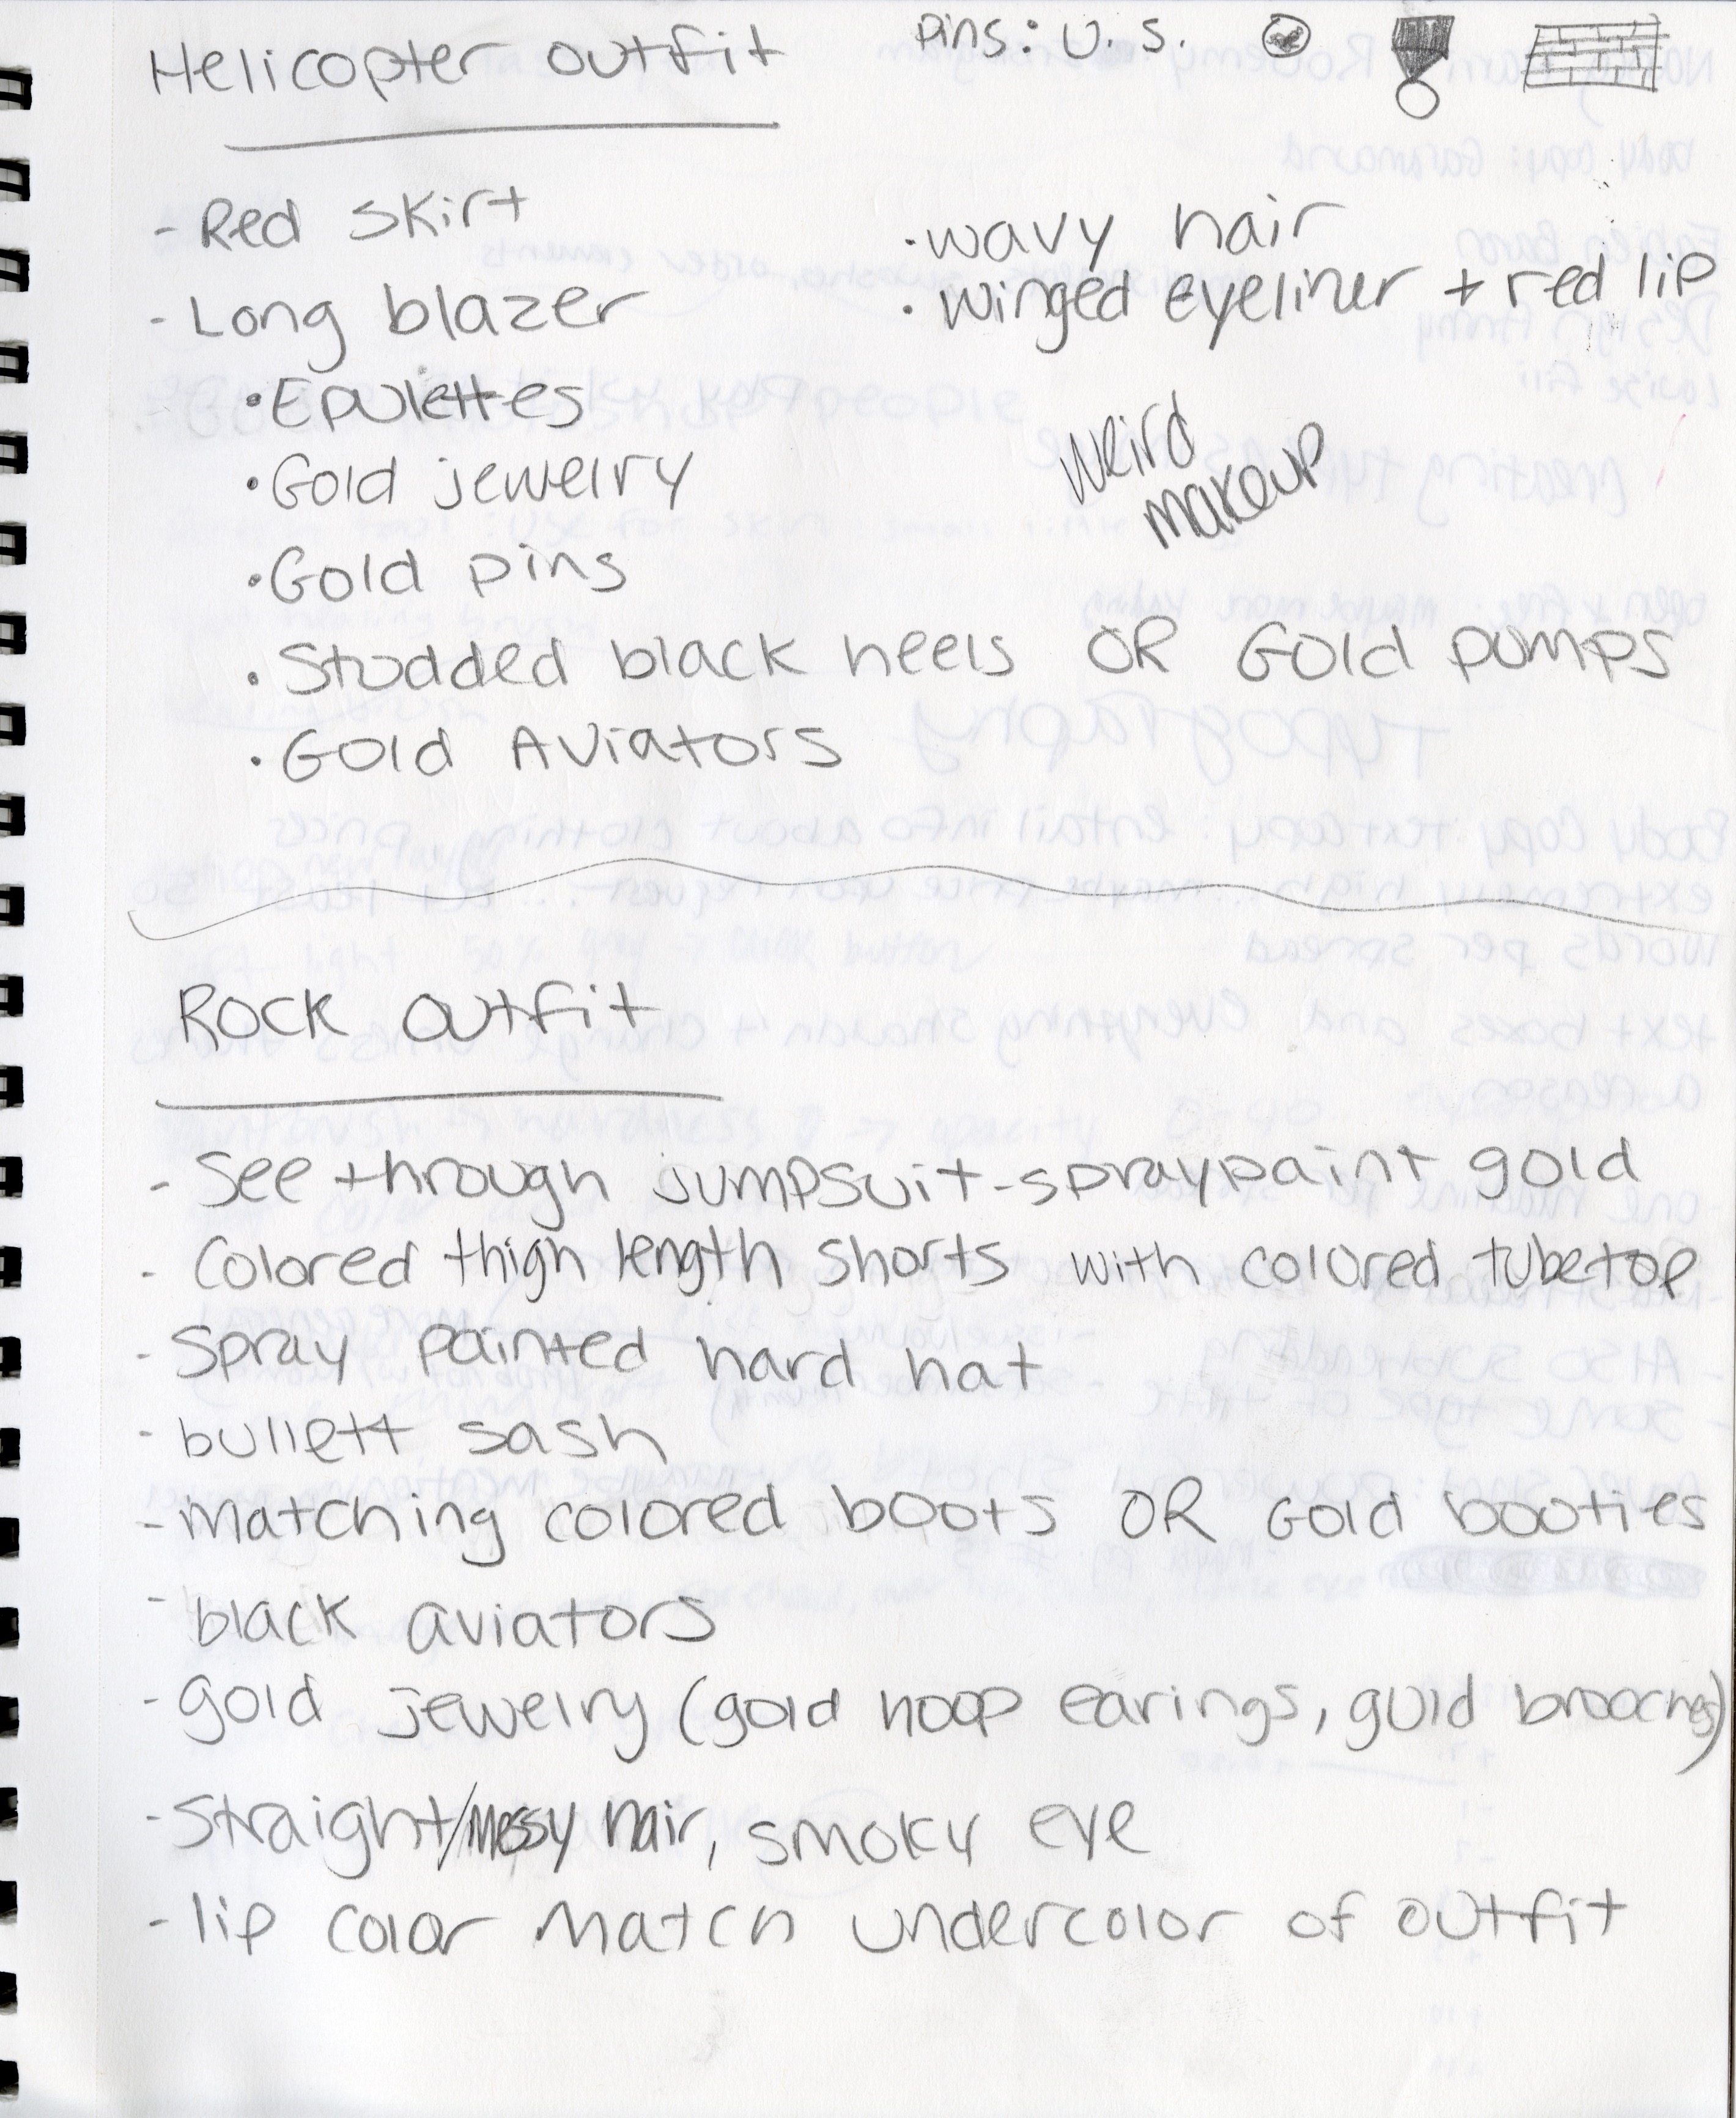 Helicopter outfit
pins: U.S.
- Red skirt
- Long blazer
• Epulettes
• Gold jewelry
• Gold pins
• Studded black heels OR Gold pumps
• Gold Aviators
• wavy hair
• winged eyeliner + red lip
weird
makeup
Rock outfit
- See through jumpsuit - spraypaint gold
- Colored thigh length shorts with colored tubetop
- Spray painted hard hat
- bullett sash
- matching colored boots OR Gold booties
- black aviators
- gold jewelry (gold hoop earings, gold brooches)
- Straight/messy hair, smoky eye
- lip color match undercolor of outfit